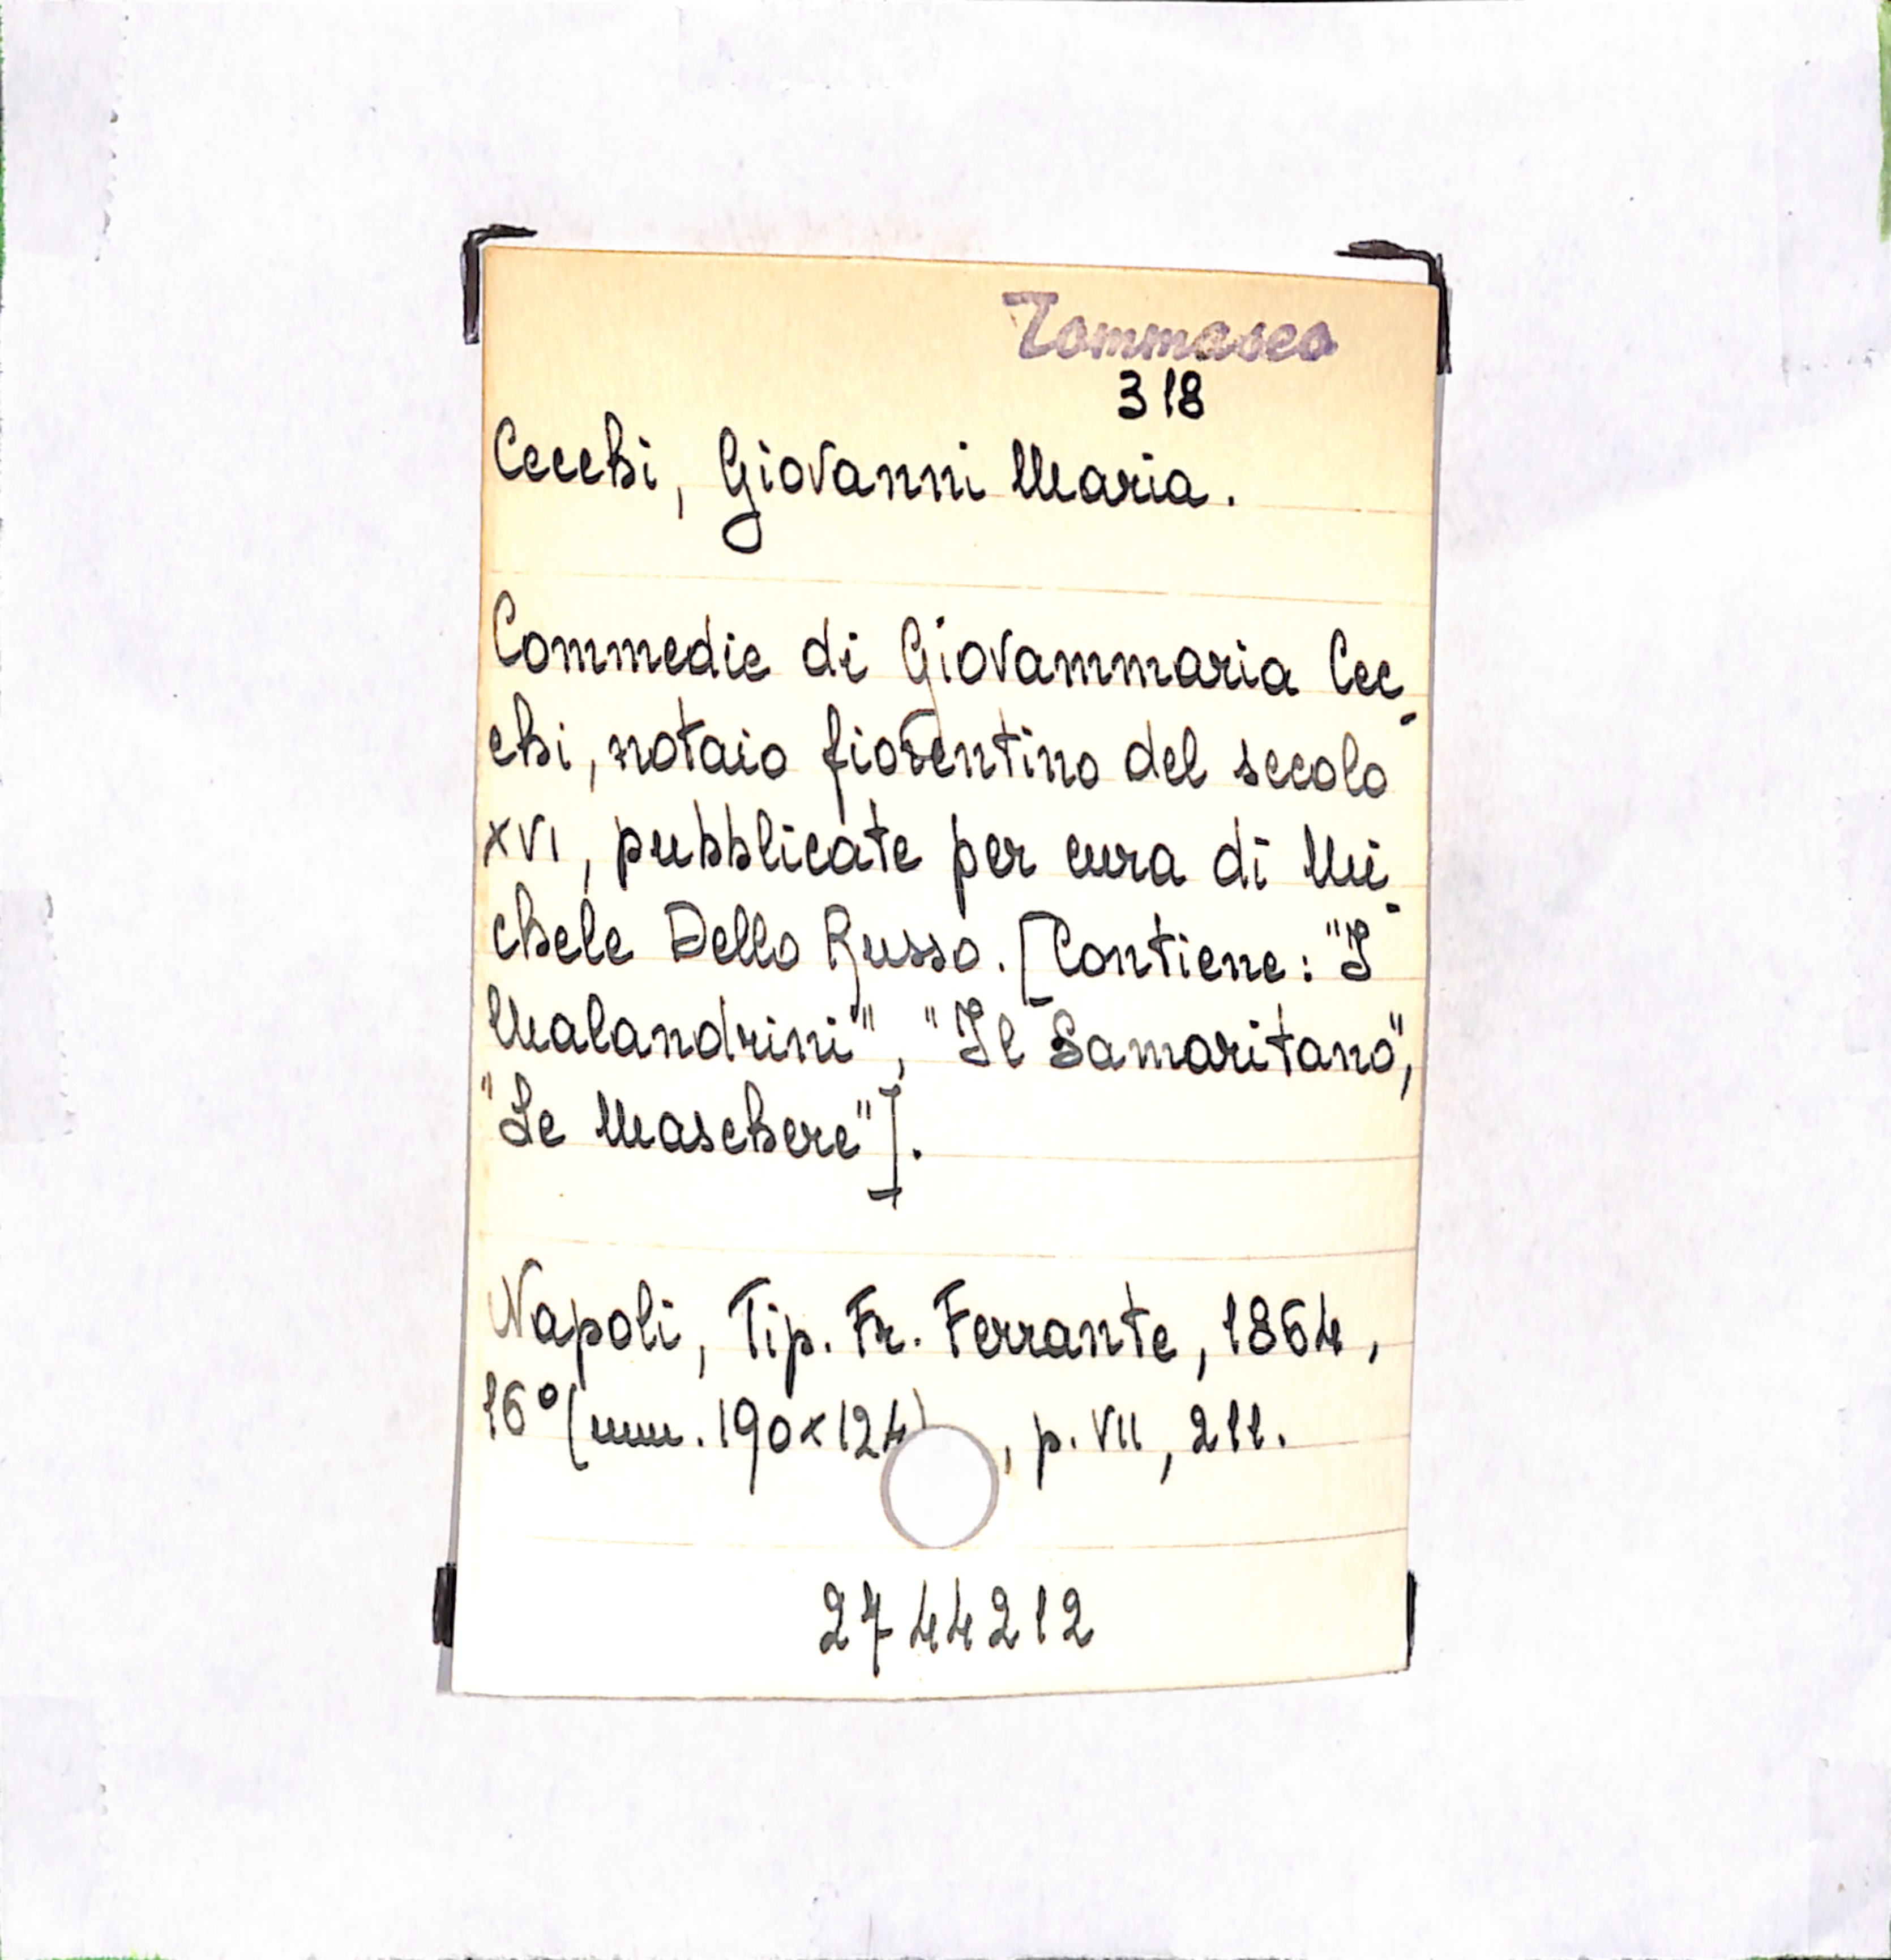 Tommaseo
318
Cecchi, Giovanni Maria.
Commedie di Giovammaria Cec-
chi, notaio fiorentino del secolo
XVI, pubblicate per cura di Mi-
chele Dello Russo. [Contiene: "I
Malandrini", "Il Samaritano",
"Le Maschere"].
Napoli, Tip. Fr. Ferrante, 1864,
16° (mm. 190x124), p. VII, 211.
2744212